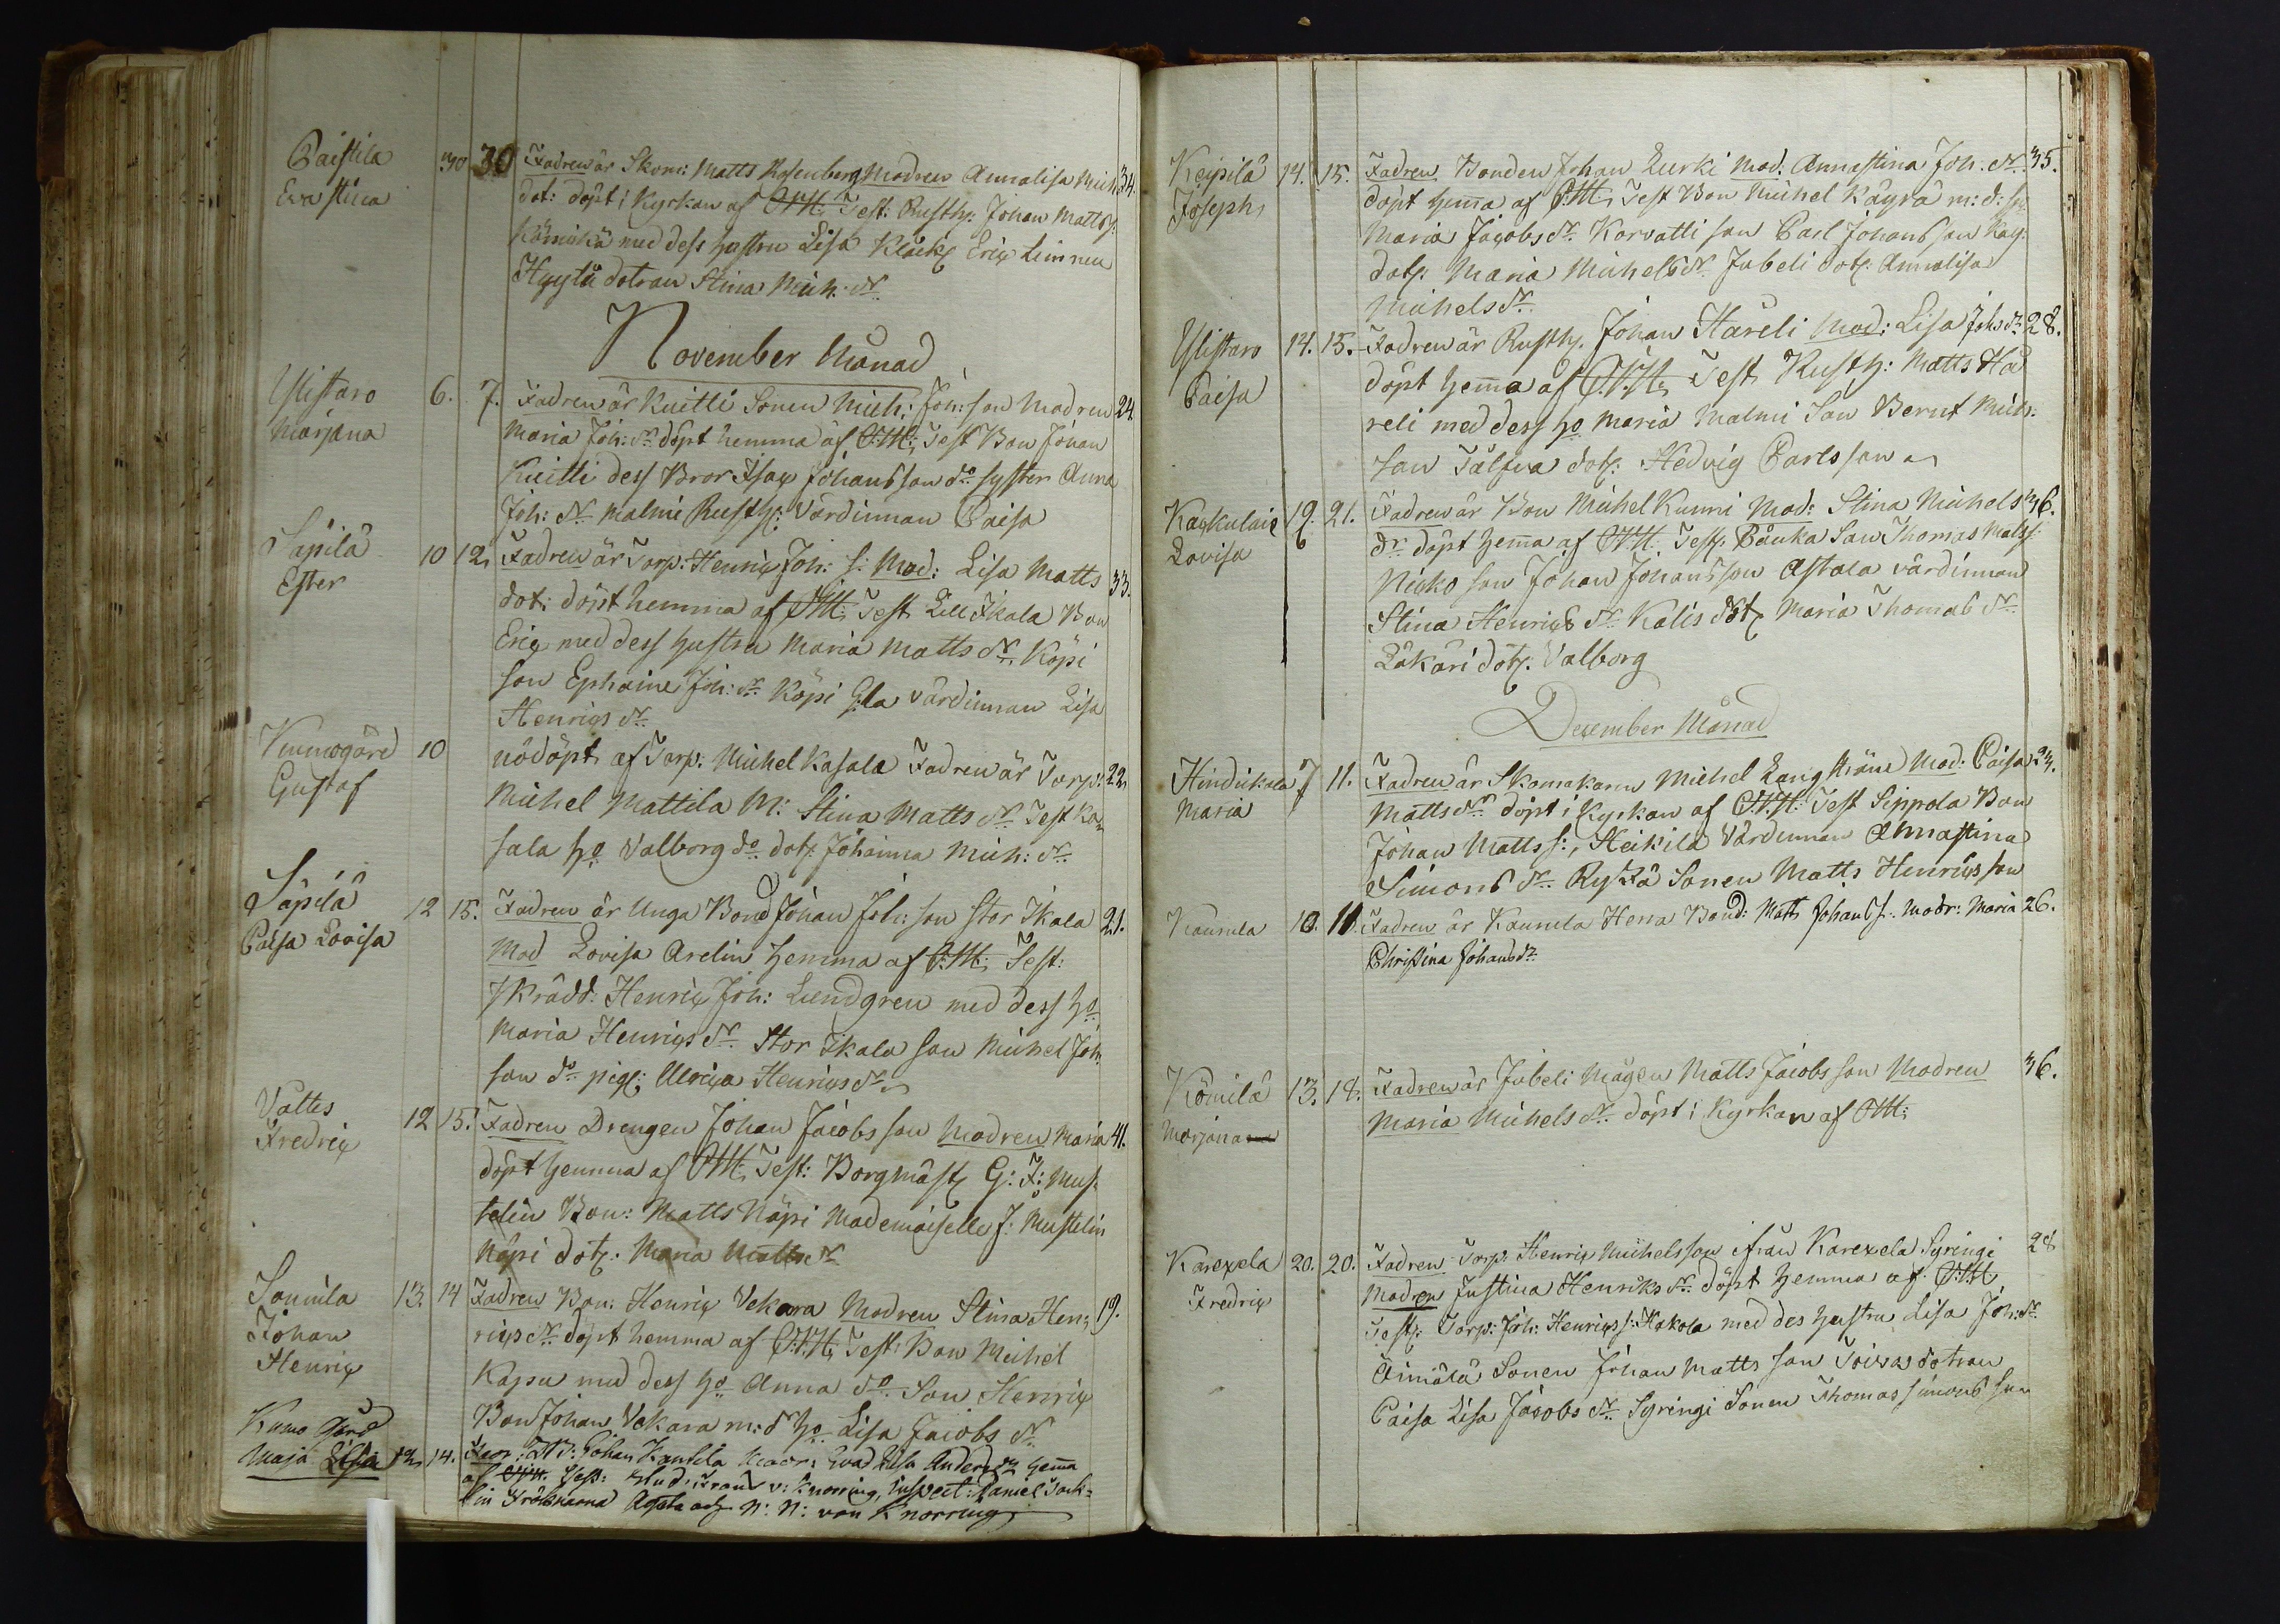 Paistila 30 30 Fadren är Skom: Matts Rosenberg Modren Annalisa Mich: 34.
Eva Stina dot: döpt i Kyrkan af Test: Rusth: Johan Mattss:
med dess hustru Lisa Klock: Eric Limnen
Hyytiä dotran Stina Mich: dr
November Månad
Ylistaro 6. 7. Fadren är Kuitti Sonen Mich: Joh: son Modren 24.
Marjana Maria Joh: dr döpt hemma af Test Bon Johan
Kuitti dess Bror Isac Johansson do syster Anna
Joh: dr Malmi Rusth: Värdinnan Caisa
Säpilä 10 12 Fadren är Torp: Henric Joh: s: Mod: Lisa Matts 33.
Ester dot: döpt hemma af Test Lill Ikala Bon
Eric med dess hustru Maria Matts dr Köpi
son Ephaim Joh: Köpi Gla värdinnan Lisa
Henrics dr
Kumogård 10 nödöpt af Torp: Michel Kasala Fadren är Torp: 22
Gustaf Michel Mattila M: Stina Matts dr Test Ka
sala ho Valborg do dot: Johanna Mich: dr
Säpilä 12 15. Fadren är Unga Bond Johan Joh: son Stor Ikala 21.
Caisa Lovisa Mod Lovisa Arelin hemma af Test:
Skrädd: Henric Joh: Lundgren med dess ho
Maria Henrics dr Stor Ikala son Michel Joh:
son do pig: Ulrica Henrics dr
Valtis 12 15. Fadren Drengen Johan Jacobsson Modren Maria 41.
Fredric döpt hemma af Test: Borgmäst: G: F: Mus
telin Bon: Matts Näpi Mademoiselle F: Mustelin
Näpi dot: Maria Matts dr
Sonnila 13. 14 Fadren Bon: Henric Vekara Modren Stina Hen: 19.
Johan rics dr döpt hemma af Test: Bon Michel
Henric Kapsu med dess ho Anna do Son Henric
Kumo Gård Bon Johan Vekara m: d ho Lisa Jacobs dr
Maja Lisa 12 14. Johan Kantola Modr: Lisa Anders dr hema
af Test: Stud: Frans v: Knorring, Inspect: Daniel
lin Fröknarna N: N: von Knorring
Keipilä 14. 15. Fadren Bonden Johan Lurki Mod: Annastina Joh. dr 35.
Joseph döpt hema af Test Bon Michel Käyrä m: d:
Maria Jacobs dr Karvatti son Carl Johansson Käy:
dot: Maria Michels dr Jubeli dot: Annalisa
Michels dr
Ylistaro 14. 15. Fadren är Rusth: Johan Hareli Mod: Lisa Johs dr 28.
Caisa döpt hema af Test Rusth: Matts Ha
reli med dess ho Maria Malmi Son Bernt Mich:
son dot: Hedvig Carlsson
Kackulais 19. 21. Fadren är Bon Michel Kunni Mod: Stina Michels 36.
Lovisa dr döpt hema af Test: Pänka Son Thomas Matss:
Nicko son Johan Johansson Astala värdinnan
Stina Henrics dr Kalis dot: Maria Thomas dr
Läkäri dot: Valborg
December Månad
Hindickala 7 11. Fadren är Skomakaren Michel Langström Mod: Caisa 24.
Maria Matts dr döpt i Kyrkan af Test Sippola Bon
Johan Matts s:, Heikilä Värdinnan Annastina
Simons dr Rystä Sonen Matts Henricsson
Kaurula 10. 11. Fadren är Kaurula Herra Bond: Matts Johans s: Modr: Maria 26.
Christina Johans dr
Kömilä 13. 18. Fadren är Jubeli Mågen Matts Jacobsson Modren 36.
Marjana Maria Michels dr döpt i Kyrkan af
Karexela 20. 20. Fadren Torp: Henric Michelsson ifrån Karexela Syringi 28
Fredric Modren Justina Henriks dr döpt hemma af
Test: Torp: Joh: Henrics s: Hakola med des hustru Lisa Joh: dr
Äimälä Sonen Johan Matts son Toivas dotran
Caisa Lisa Jacobs dr Syringi Sonen Thomas Simons son